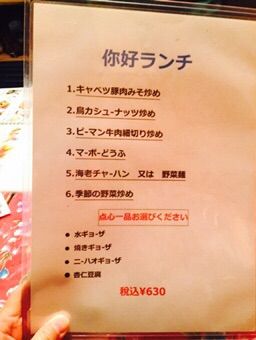 你好ランチ
1.キャベツ豚肉みそ炒め
2.鳥カシュ-ナッツ炒め
3.ピ-マン牛肉細切り炒め
4.マ-ボ-どうふ
5.海老チャ-ハン 又は 野菜麺
6.季節の野菜炒め
点心一品お選びください
● 水ギョ-ザ
● 焼きギョ-ザ
● ニ-ハオギョ-ザ
● 杏仁豆腐
税込¥630